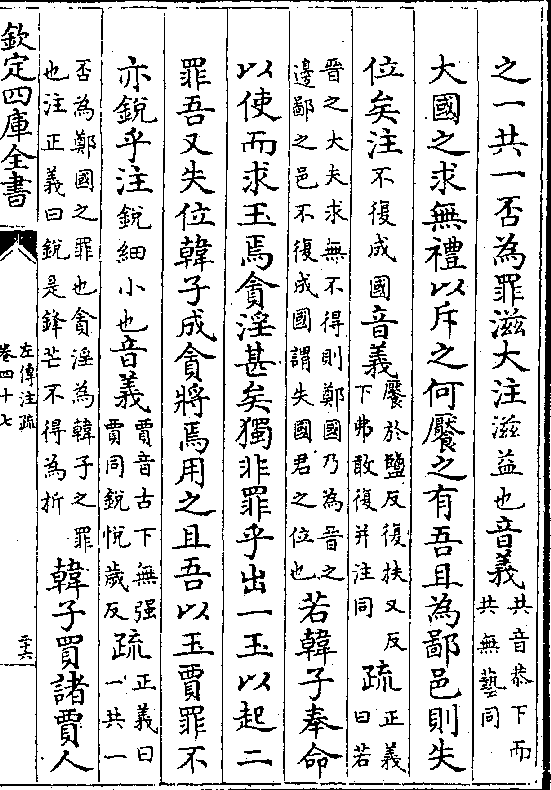 之一共一否為罪滋大注滋益也音義共音恭下而共無藝同
大國之求無禮以斥之何饜之有吾且為鄙邑則失
位矣注不復成國音義饜於鹽反復扶又反下弗敢復并注同疏正義曰若
晉之大夫求無不得則鄭國乃為晉之邊鄙之邑不復成國謂失國君之位也若韓子奉命
以使而求玉焉貪淫甚矣獨非罪乎出一玉以起二
罪吾又失位韓子成貪將焉用之且吾以玉賈罪不
亦銳乎注銳細小也音義賈音古下無强賈同銳悅歲反疏正義曰一共一
否為鄭國之罪也貪淫為韓子之罪也注正義曰銳是鋒芒不得為折韓子買諸賈人
欽定四庫全書
左傳注疏
卷四十七
二十六